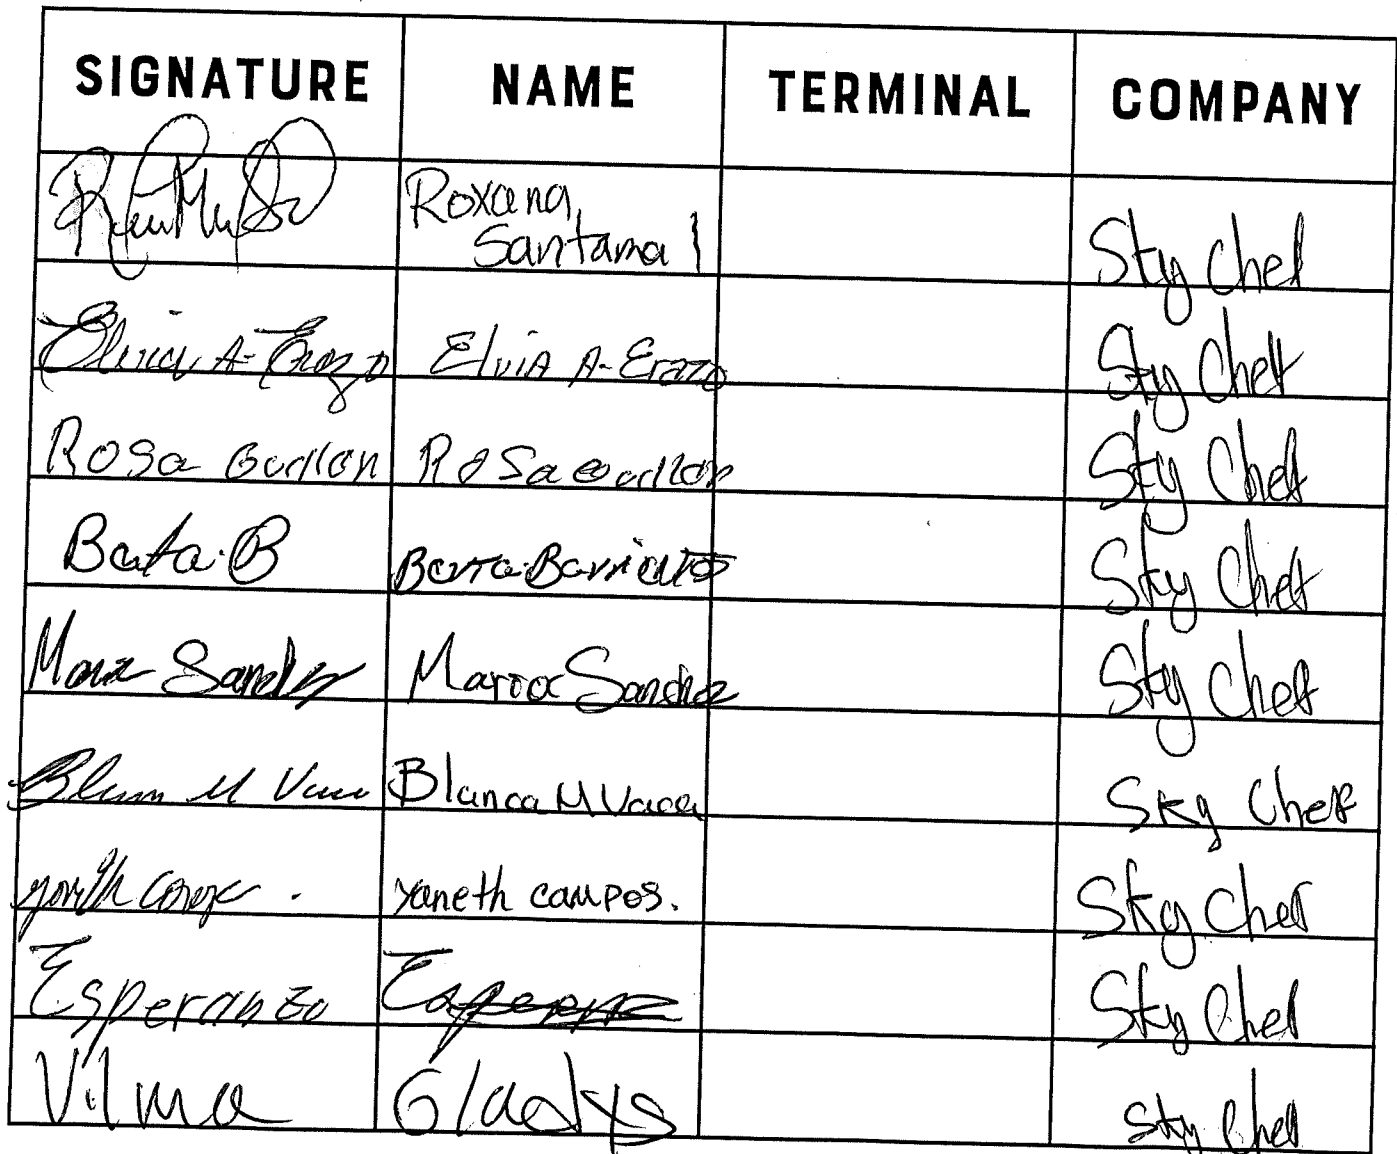 SIGNATURE NAME TERMINAL COMPANY
Roxana
Santama Sky Chef
Elvia A- Erazo Elvia A- Erazo Sky Chef
Rosa Rosa Sky Chef
Berta B Berta Barrientos Sky Chef
Maria Sanchez Maria Sanchez Sky Chef
Blanca M Vaca Blanca M Vaca Sky Chef
yaneth campos. Sky Chef
Esperanza Sky Chef
Vilma Gladys Sky Chef